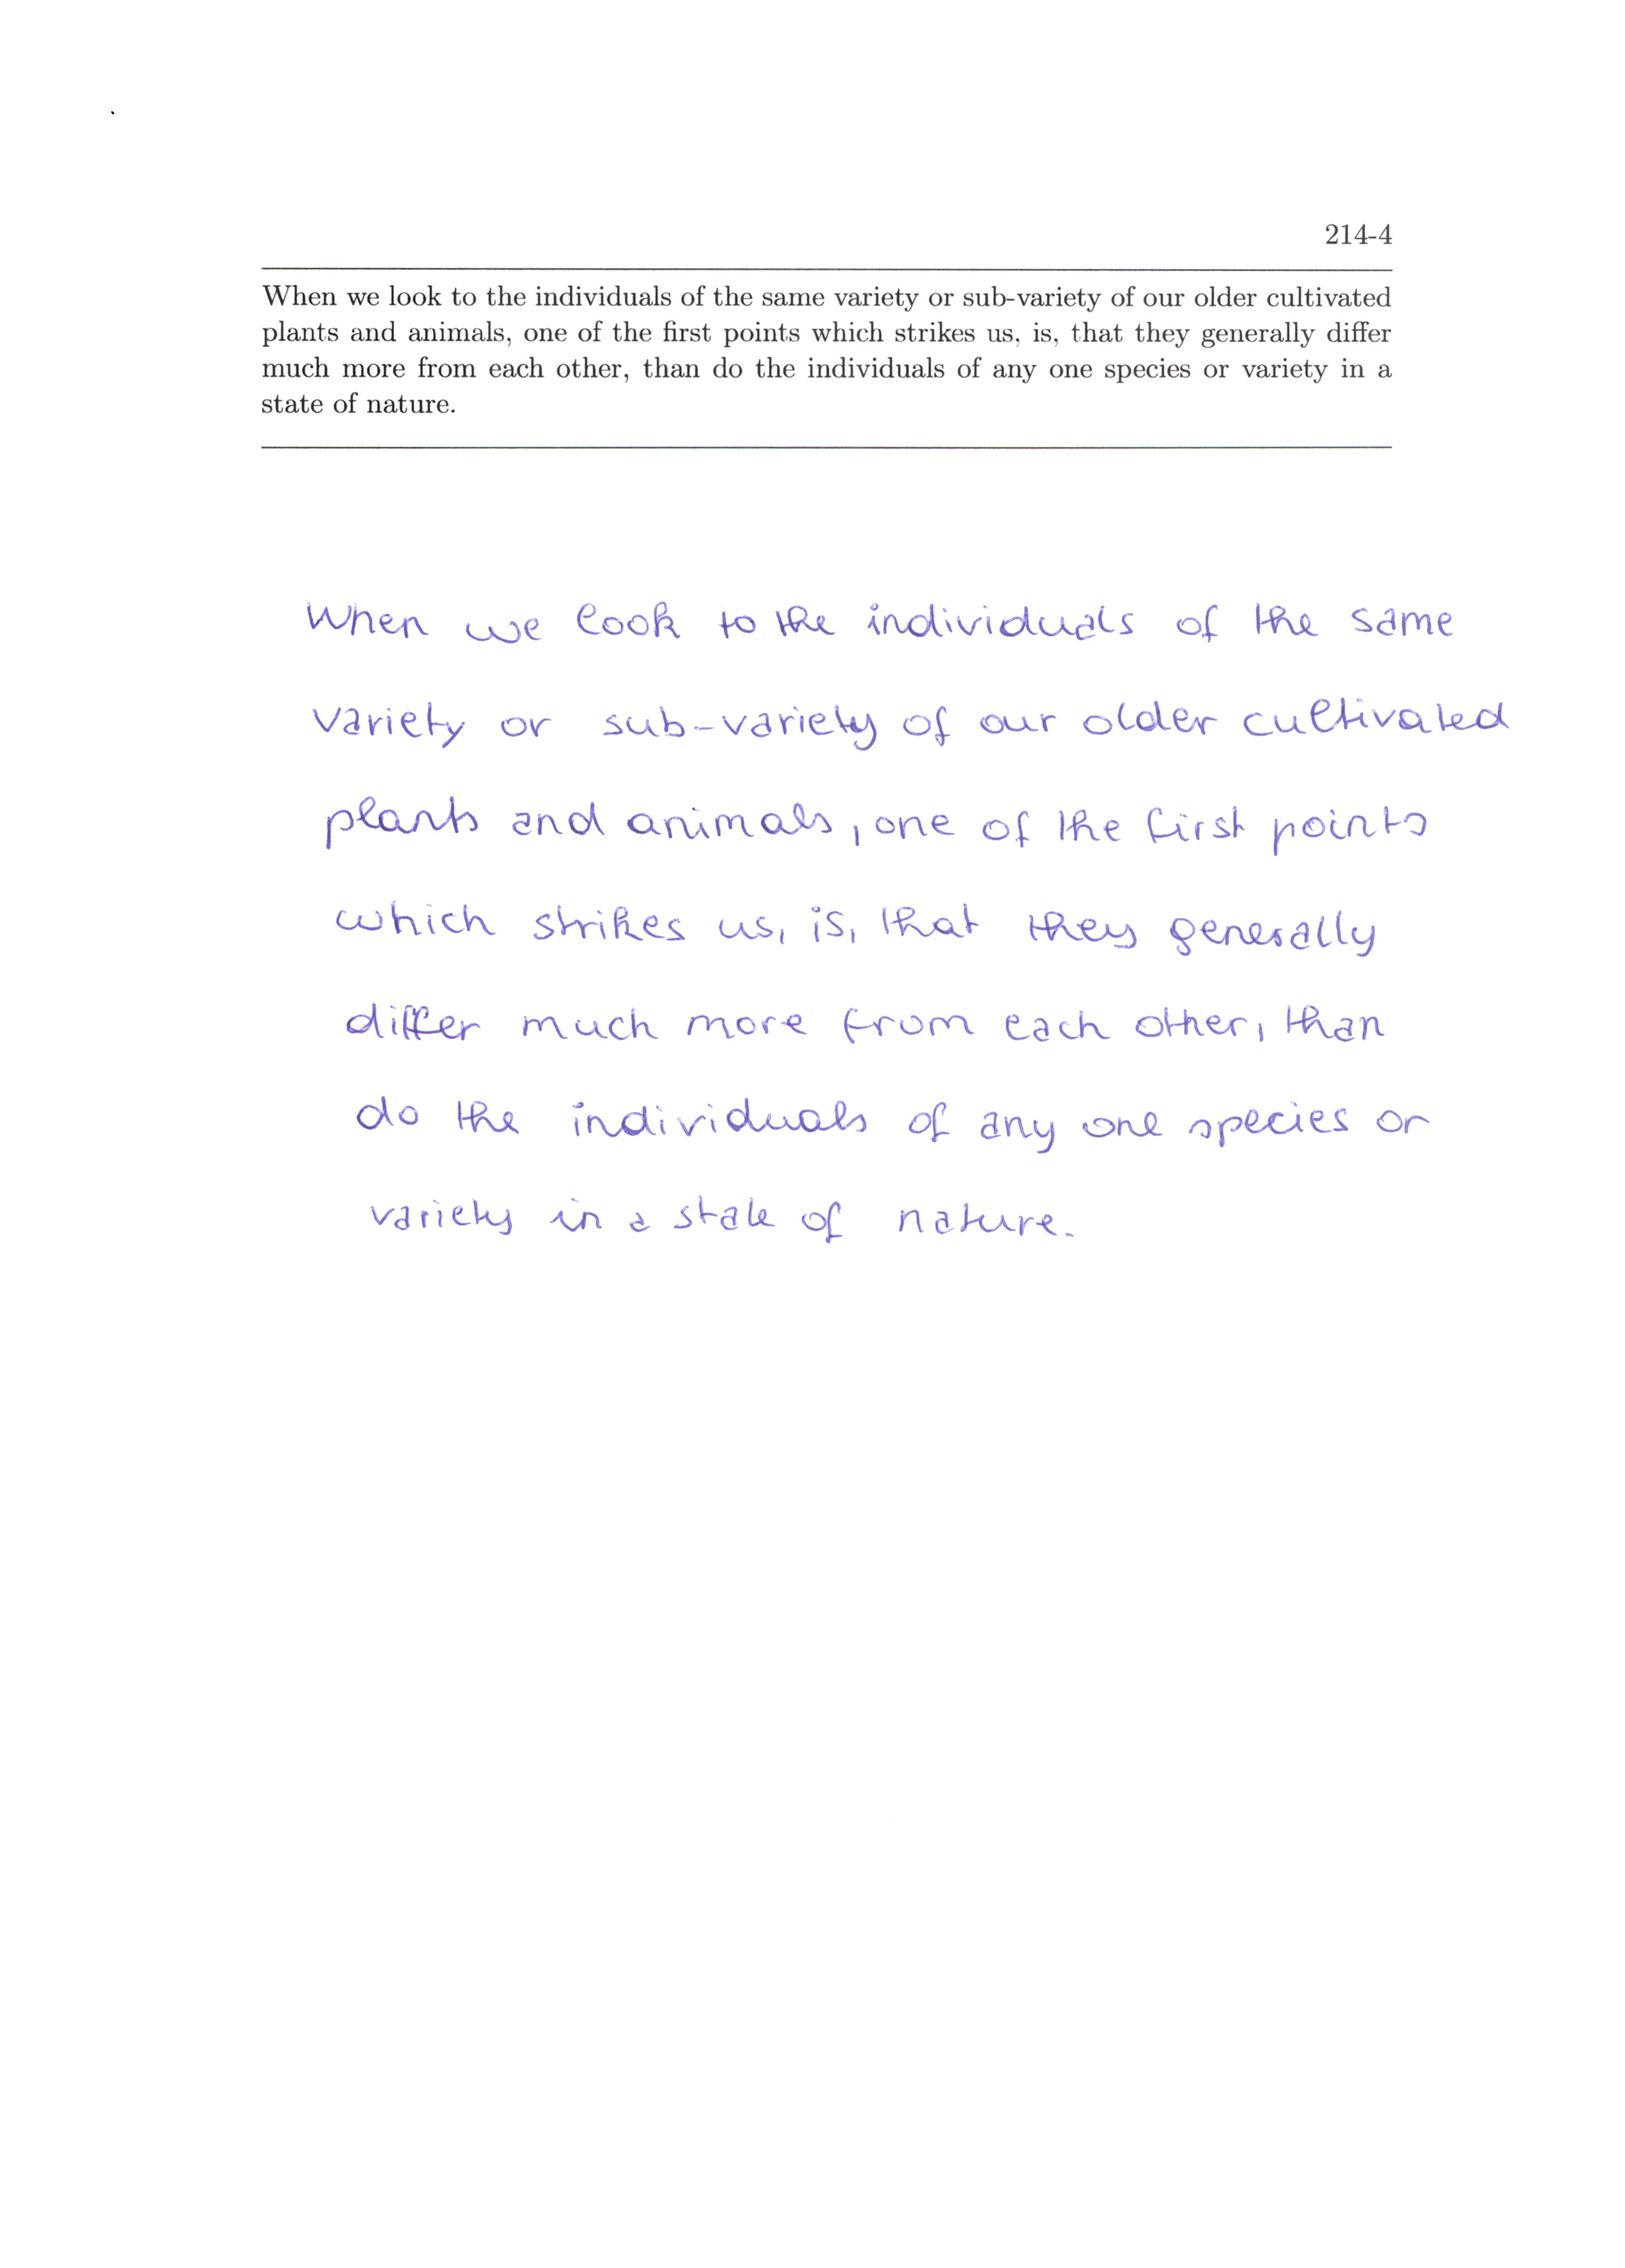 214-4
When we look to the individuals of the same variety or sub-variety of our older cultivated
plants and animals, one of the first points which strikes us, is, that they generally differ
much more from each other, than do the individuals of any one species or variety in a
state of nature.
When we look to the individuals of the same
variety or sub-variety of our older cultivated
plants and animals, one of the first points
which strikes us, is, that they generally
differ much more from each other, than
do the individuals of any one species or
variety in a state of nature.